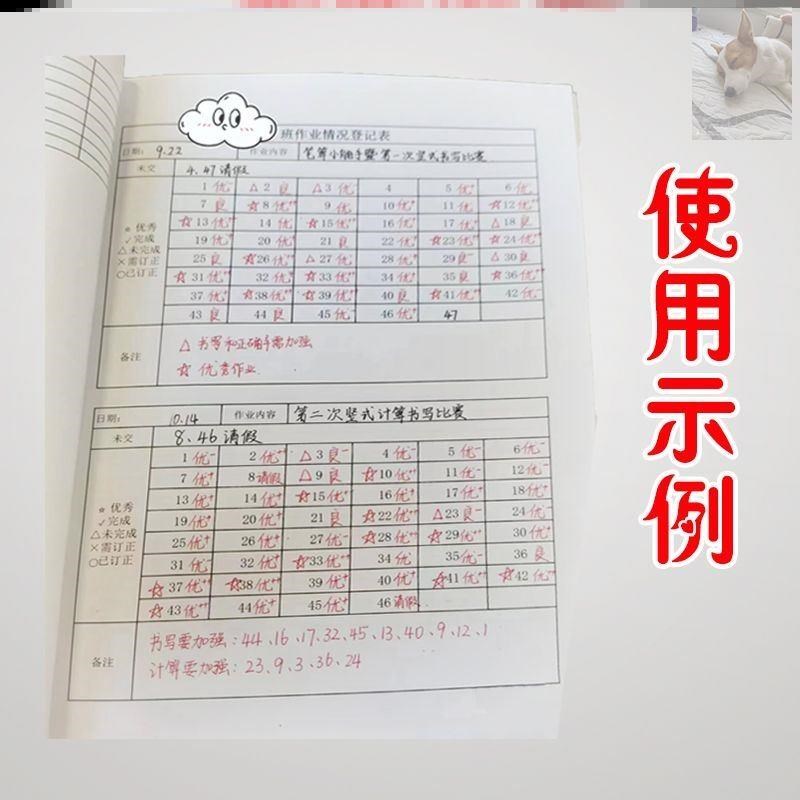 班作业情况登记表
日期: 9.22 作业内容 笔算小能手暨第一次竖式书写比赛
未交 4、47请假
☆ 优秀
✓完成
△未完成
×需订正
○已订正
1 优 △2 良 △3 优 4 5 优⁺ 6 优
7 良 ☆8 优⁺⁺ 9 优 10 优⁺ 11 优 ☆12 优⁺⁺
☆13 优⁺⁺ 14 优 ☆15 优⁺⁺ 16 优⁺ 17 优⁺ △18 良
19 优 20 优⁺ 21 良 22 优⁺ ☆23 优⁺⁺ ☆24 优⁺⁺
25 良 ☆26 优⁺⁺ △27 优 28 优⁺ 29 良⁻ △30 良
☆31 优⁺⁺ 32 优⁺ ☆33 优⁺⁺ 34 优 35 良 ☆36 优⁺⁺
37 优⁺ ☆38 优⁺⁺ ☆39 优⁺⁺ 40 良 ☆41 优⁺⁺ 42 优⁻
43 良 44 良 45 优 46 优⁺ 47
备注
△ 书写和正确率需加强
☆ 优秀作业
日期: 10.14 作业内容 第二次竖式计算书写比赛
未交 8、46请假
☆ 优秀
✓完成
△未完成
×需订正
○已订正
1 优⁻ 2 优⁺ △3 良⁻ 4 优⁻ 5 优⁻ 6 优⁻
7 优⁺ 8请假 △9 良 ☆10 优⁺⁺ 11 优⁻ 12 优⁻
13 优⁺ 14 优⁺ ☆15 优⁺⁺ 16 优⁺ 17 优⁺ 18 优⁺
19 优⁺ 20 优⁺ 21 良 ☆22 优⁺⁺ △23 良⁻ 24 优⁻
25 优⁺ 26 优⁺ 27 优⁻ ☆28 优⁺⁺ ☆29 优⁺⁺ 30 优⁺
31 优⁻ 32 优⁺ ☆33 优⁺⁺ 34 优 35 优⁻ 36 良
☆37 优⁺⁺ ☆38 优⁺⁺ 39 优⁺ 40 优⁺ ☆41 优⁺⁺ ☆42 优⁺⁺
☆43 优⁺⁺ 44 优⁺ 45 优⁺ 46 请假
备注
书写要加强:44、16、17、32、45、13、40、9、12、1
计算要加强:23、9、3、36、24
使用示例